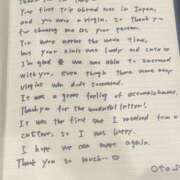 My first Trip abroad was in Japan,
and you were a virgin. So Thank you
for choosing me as your person.
You were nervous the whole time,
but your smile was lovely and cute so
I'm glad we were able to succeed
with you. Even though there were many
virgins who didn't succeed.
It was a great feeling of accomplishment,
Thank you for the wonderful letter!
It was the first one I received from a
customer, so I was happy.
I hope we can meet again.
Thank you so much